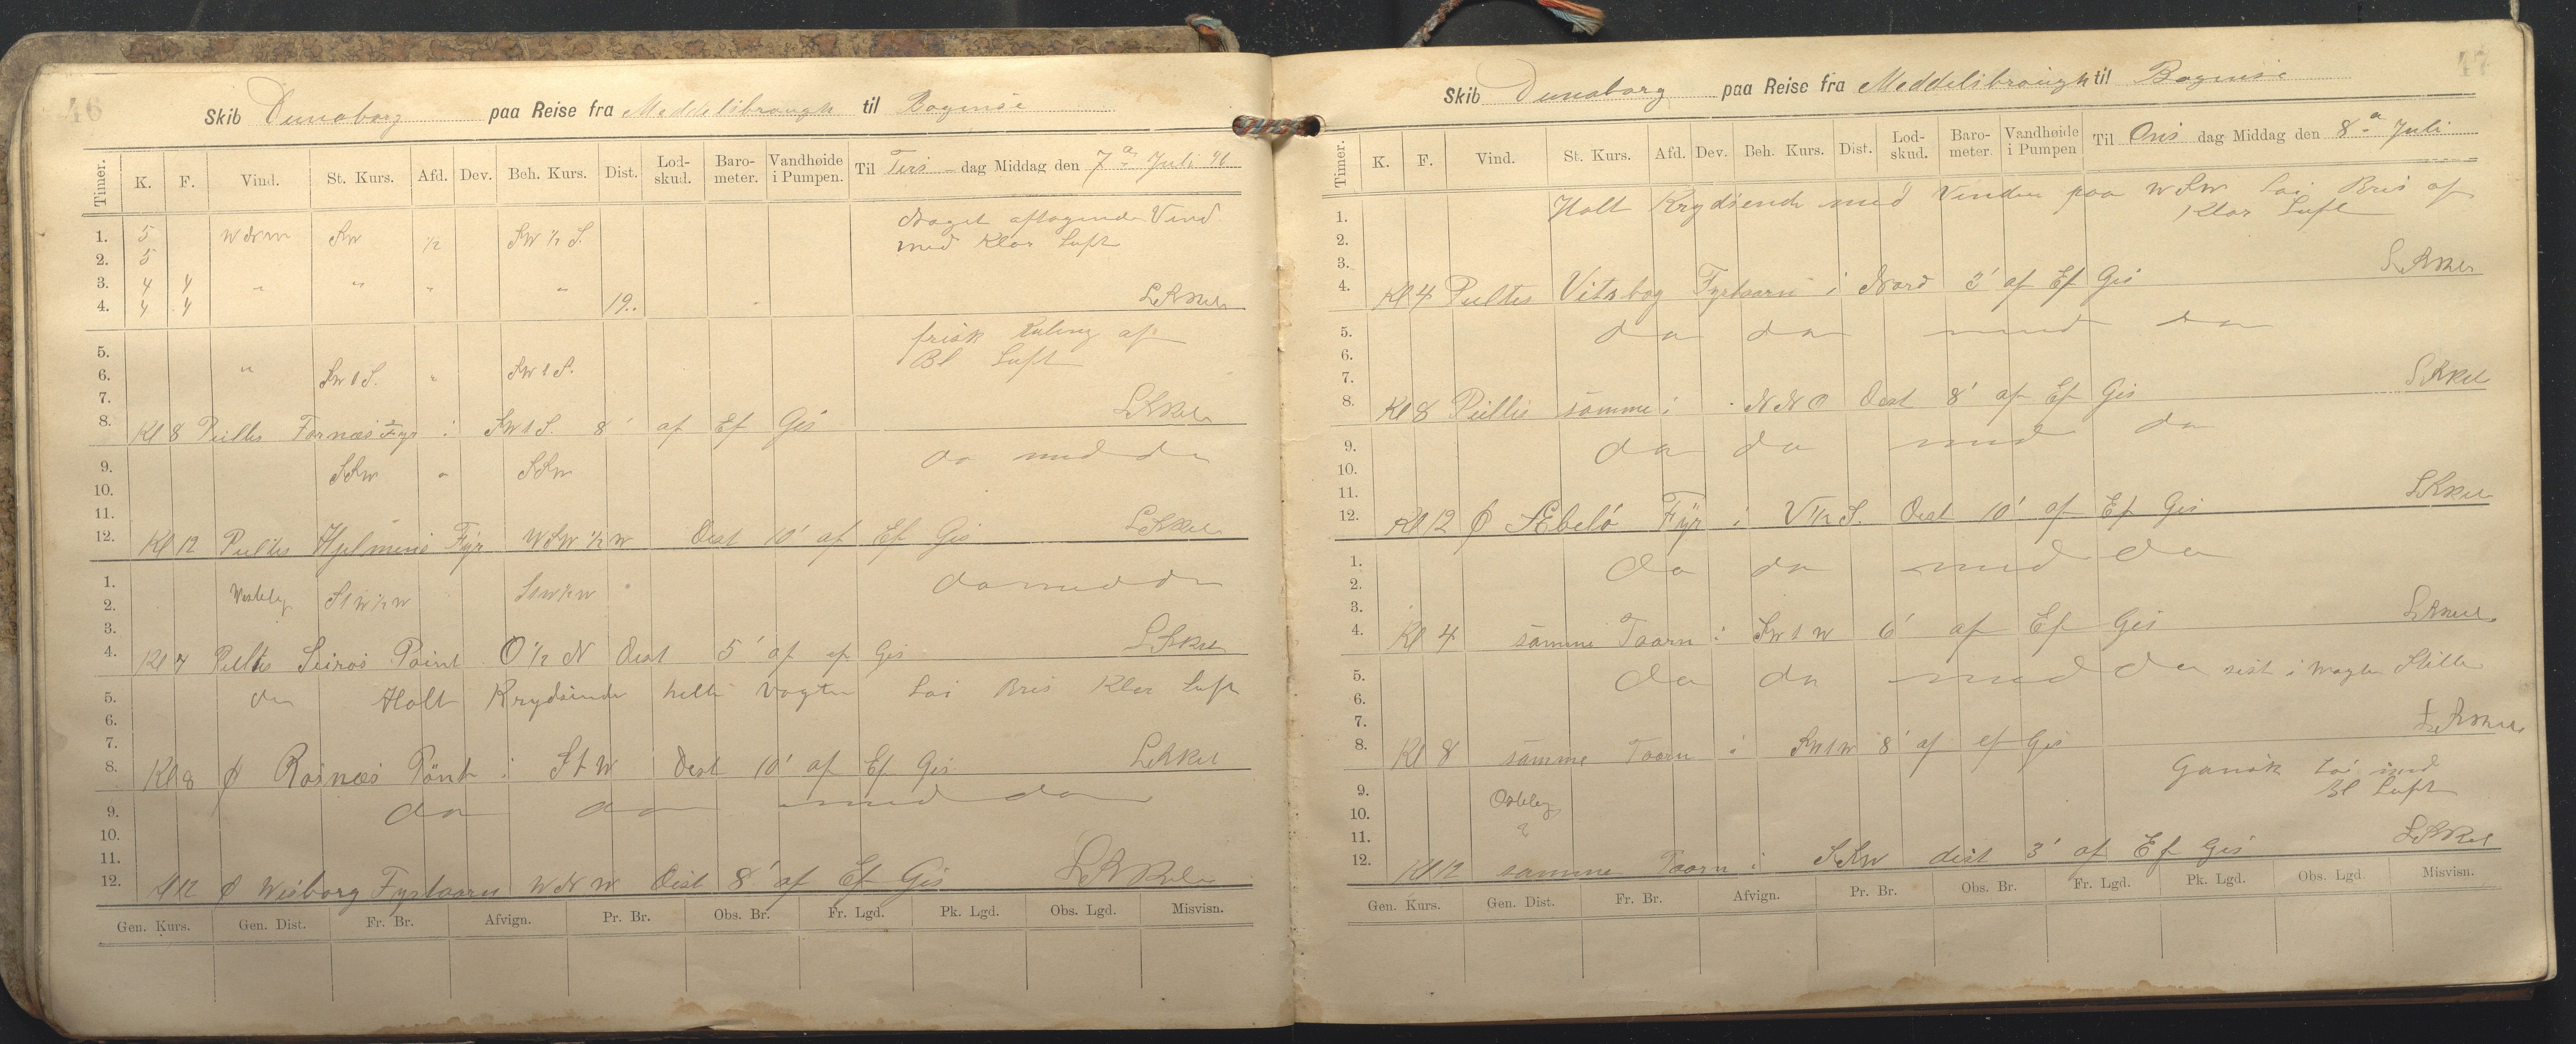 46
Skib Dunaborg paa Reise fra Meddelsbrough til Bogense
Timer. K. F. Vind. St. Kurs. Afd. Dev. Beh. Kurs. Dist. Lod-skud. Baro-meter. Vandhøide i Pumpen. Til Tirs-dag Middag den 7 Juli
Noget aftagende Vind
1. 5 WNW SW ½ SW ½ S.
med Klar Luft
2. 5
3. 4 4 " " " "
4. 4 4 19..
frisk Kuling af
5.
Bl Luft
6. " SWtS. " SWtS.
7.
8. Kl 8 Peiltes Fornæs Fyr i SWtS. 8' af Ef Gis
9. SSW " SSW do med do
10.
11.
12. Kl 12 Peiltes Hjelmens Fyr WSW ½ W Dist 10' af Ef Gis
1. do med do
2. Vestelig StW½W StW½W
3.
4. Kl 4 Peiltes Seirøs Point O ½ N Dist 5' af ef Gis
5. do Holt Krydsende hele Vagten Løi Bris Klar Luft
6.
7.
8. Kl 8 φ Rosnæs Pönt i StW Dist 10' af Ef Gis
9. do do med do
10.
11.
12. φ Wisborg Fyrtaarn WNW Dist 8' af Ef Gis
Gen. Kurs. Gen. Dist. Fr. Br. Afvign. Pr. Br. Obs. Br. Fr. Lgd. Pk. Lgd. Obs. Lgd. Misvisn.
47
Skib Dunaborg paa Reise fra Meddelsbrough til Bogense
Timer. K. F. Vind. St. Kurs. Afd. Dev. Beh. Kurs. Dist. Lod-skud. Baro-meter. Vandhøide i Pumpen Til Ons dag Middag den 8 Juli
1. Holt Krydsende med Vinden paa WSW Løi Bris af
Klar Luft
2.
3.
4. Kl 4 Peiltes Vitsbog Fyrtaarn i Nord 3' af Ef Gis
5. do do med do
6.
7.
8. Kl 8 Peiltes samme i NNO Dist 8' af Ef Gis
9. do do med do
10.
11.
12. Kl 12 φ Æbelö Fyr i V½S. Dist 10' af Ef Gis
1. do do med do
2.
3.
4. Kl 4 samme Taarn i SWtW 6' af Ef Gis
5. do do med do sist i Vagten Stille
6.
7.
8. Kl 8 samme Taarn i SWtW 8' af ef Gis
Gansk Löi med
9. Ostelig
Bl Luft
10.
11.
12. Kl 12 samme Taarn i SSW dist 3' af Ef Gis
Gen. Kurs. Gen. Dist. Fr. Br. Afvign. Pr. Br. Obs. Br. Fr. Lgd. Pk. Lgd. Obs. Lgd. Misvisn.